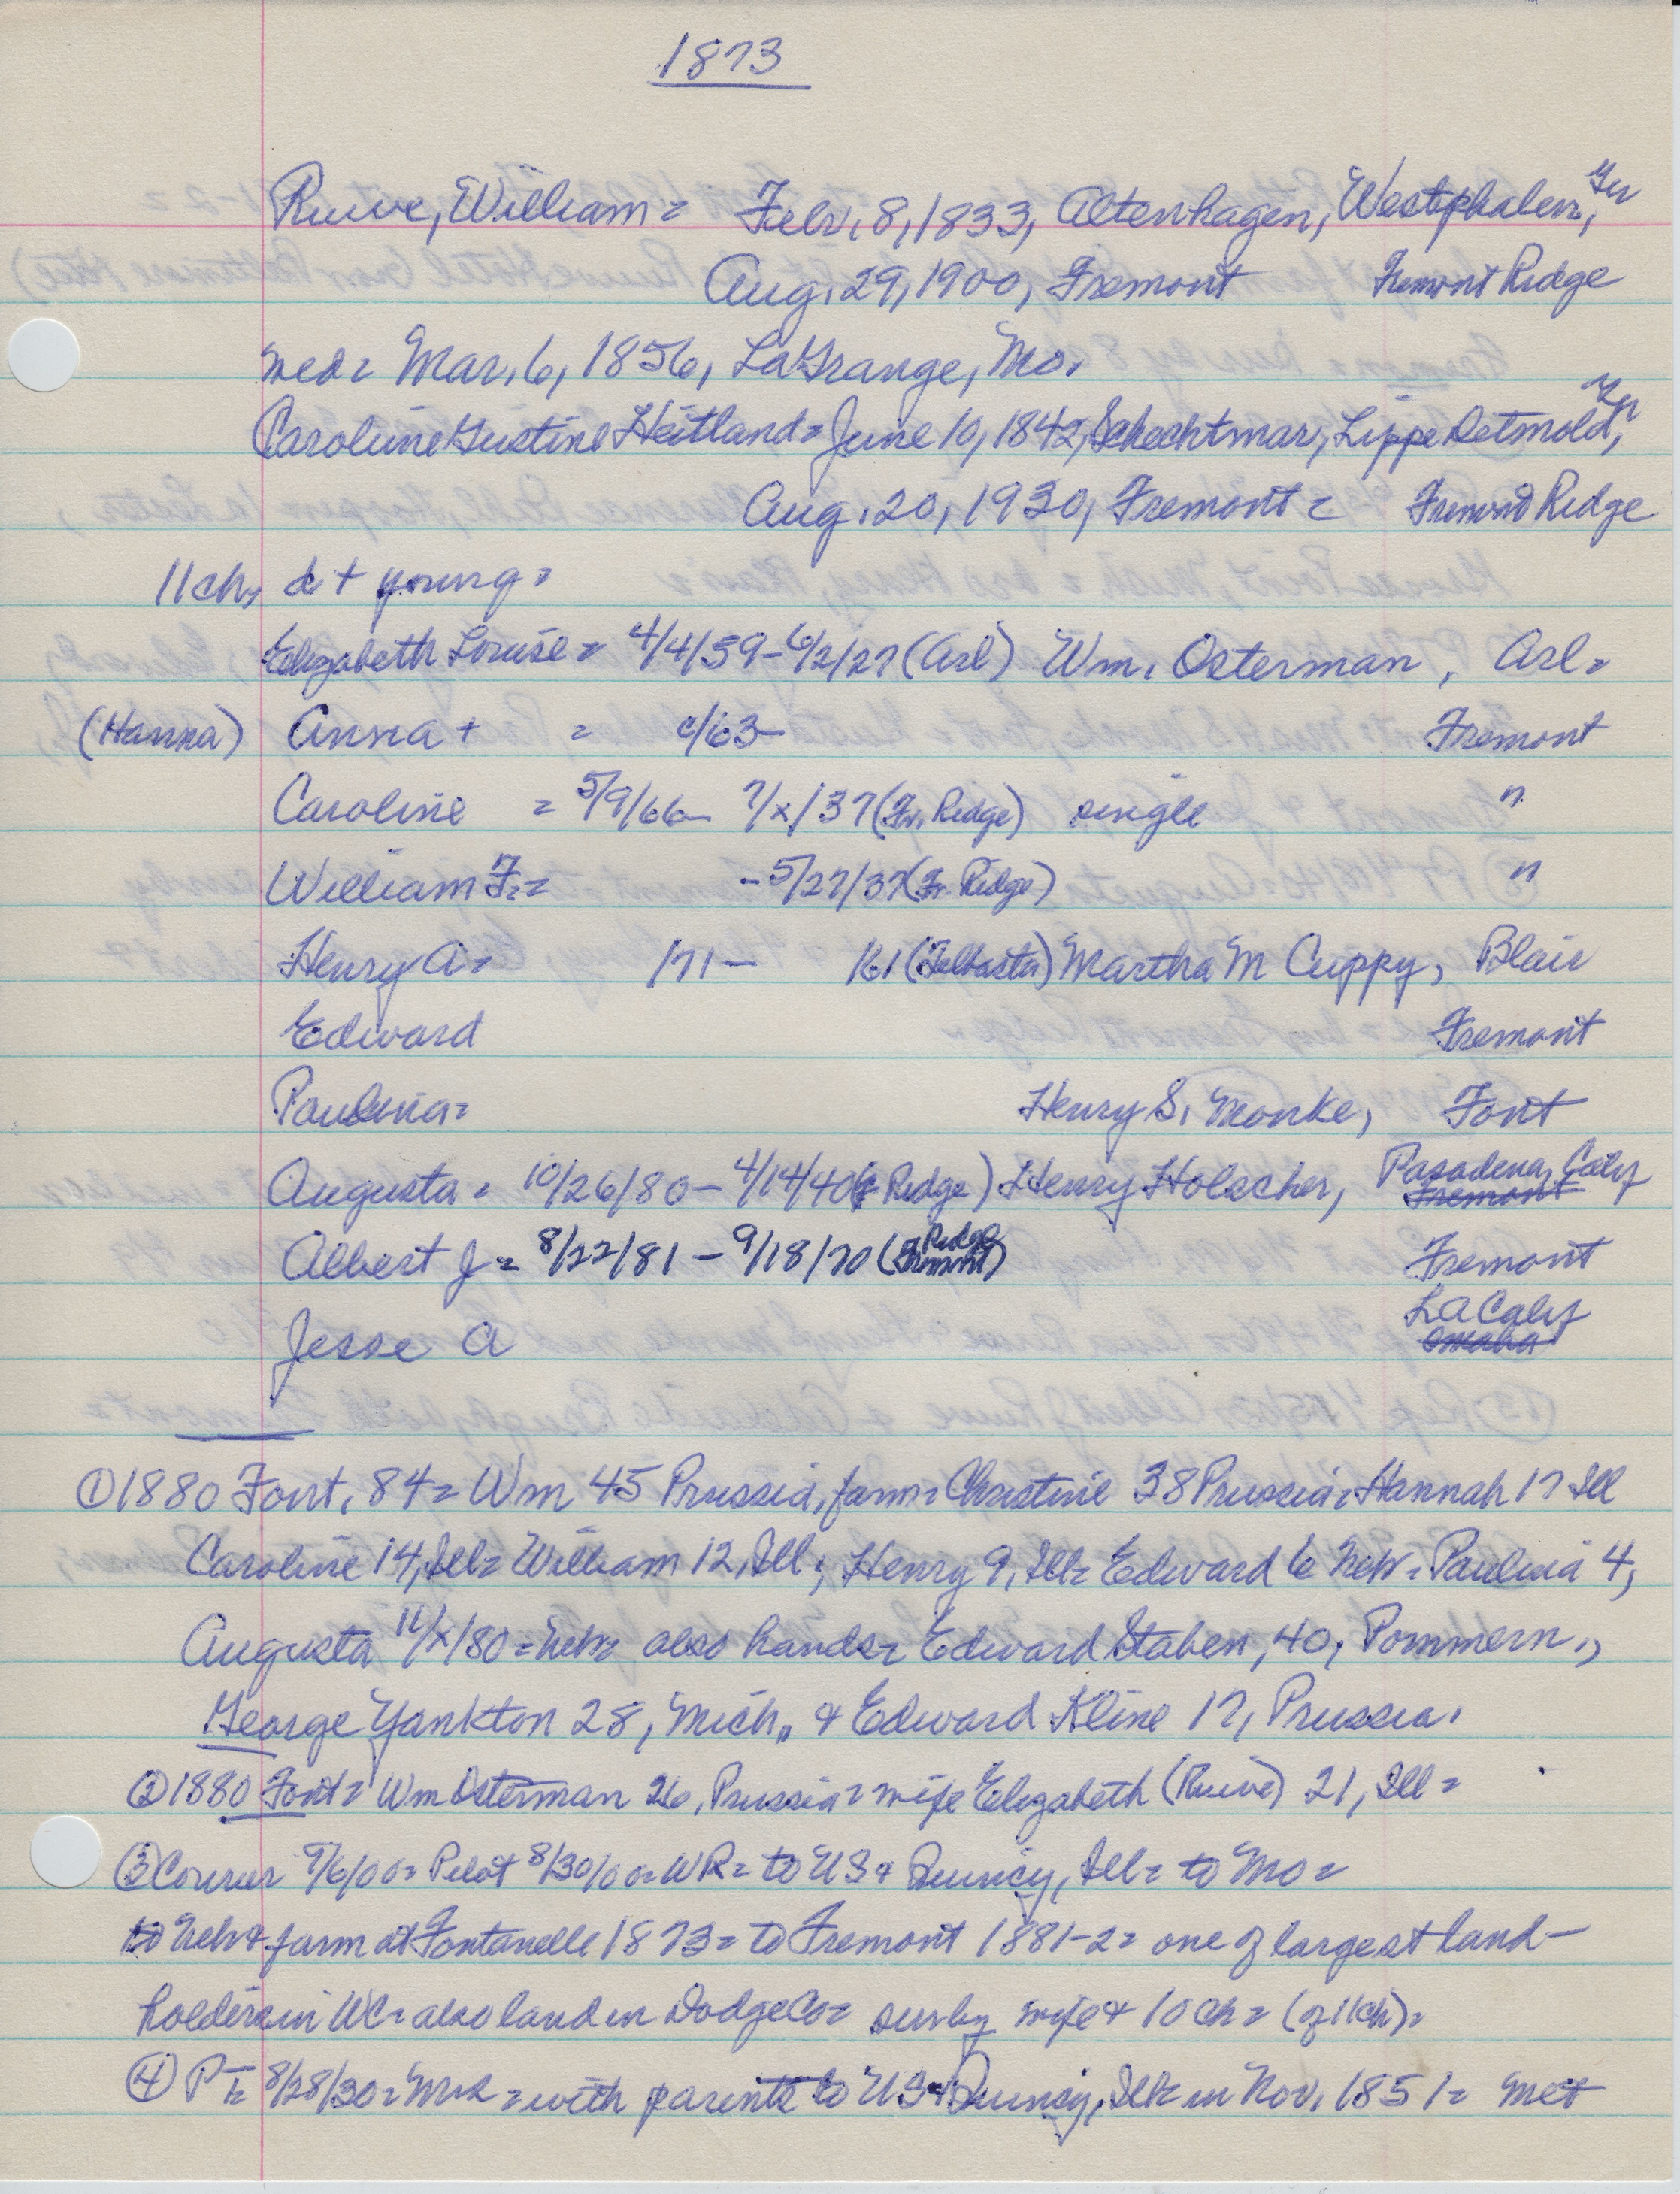 1873
Ruwe, William = Feb. 8, 1833, Altenhagen, Westphalen, Ger
Aug. 29, 1900, Fremont Fremont Ridge
med = Mar. 6, 1856, LaGrange, Mo.
Caroline Justine Heitland = June 10, 1842, Schechtmar, Lippe Detmold, Ger
Aug. 20, 1930, Fremont = Fremont Ridge
11 ch, d + young =
Elizabeth Louise = 4/4/59 - 6/2/27 (Arl) Wm. Osterman, Arl =
(Hanna) Anna + = c/63 - Fremont
Caroline = 5/9/66 - 7/x/37 (Fr. Ridge) single "
William F. = - 5/27/37 (Fr. Ridge) "
Henry A = /71 - /61 (Telbasta) Martha M Cuppy, Blair
Edward Fremont
Paulina = Henry S. Monke, Font
Augusta = 10/26/80 - 4/14/40 (F Ridge) Henry Holscher, Pasadena, Calif Fremont
Albert J = 8/22/81 - 9/18/70 (Fremont Ridge) Fremont
Jesse A LA Calif Omaha
① 1880 Font, 84 = Wm 45 Prussia, farm = Christine 38 Prussia = Hannah 17 Ill
Caroline 14, Ill = William 12, Ill; Henry 9, Ill = Edward 6 Neb = Paulina 4,
Augusta /x/80 = Neb = also hands = Edward Staben, 40, Pommern.,
George Yankton 28, Mich., & Edward Kline 17, Prussia.
② 1880 Font = Wm Osterman 26, Prussia = wife Elizabeth (Ruwe) 21, Ill =
③ Courier 9/6/00 = Pilot 8/30/00 = WR = to US & Quincy, Ill = to Mo =
to Neb & farm at Fontanelle 1873 = to Fremont 1881-2 = one of largest land-
holders in WC = also land in Dodge Co = surv by wife & 10 ch = (of 11 ch) =
④ 8/28/30 = = with parents to US & Quincy, Ill = in Nov. 1851 = met